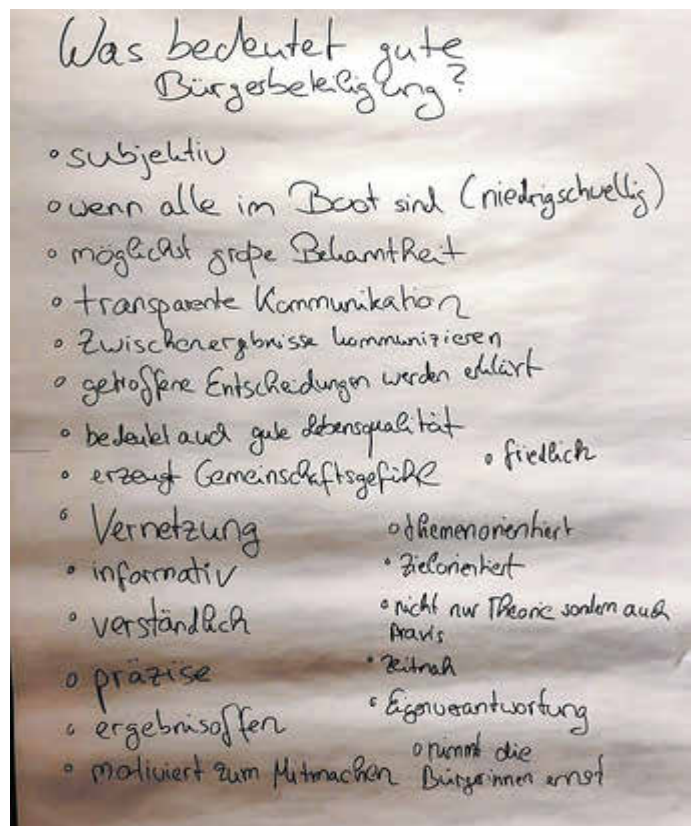 Was bedeutet gute
Bürgerbeteiligung?
• subjektiv
• wenn alle im Boot sind (niedrigschwellig)
• möglichst große Bekanntheit
• transparente Kommunikation
• Zwischenergebnisse kommunizieren
• getroffene Entscheidungen werden erklärt
• bedeutet auch gute Lebensqualität
• erzeugt Gemeinschaftsgefühl
• fiedlich
• Vernetzung
• informativ
• verständlich
• präzise
• ergebnisoffen
• motiviert zum Mitmachen
• themenorientiert
• zielorientiert
• nicht nur Theorie sondern auch
Praxis
• zeitnah
• Eigenverantwortung
• nimmt die
Bürgerinnen ernst